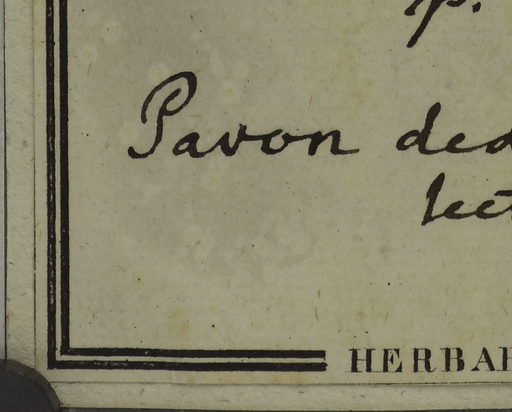 p.
Pavon ded
lect
HERBAR